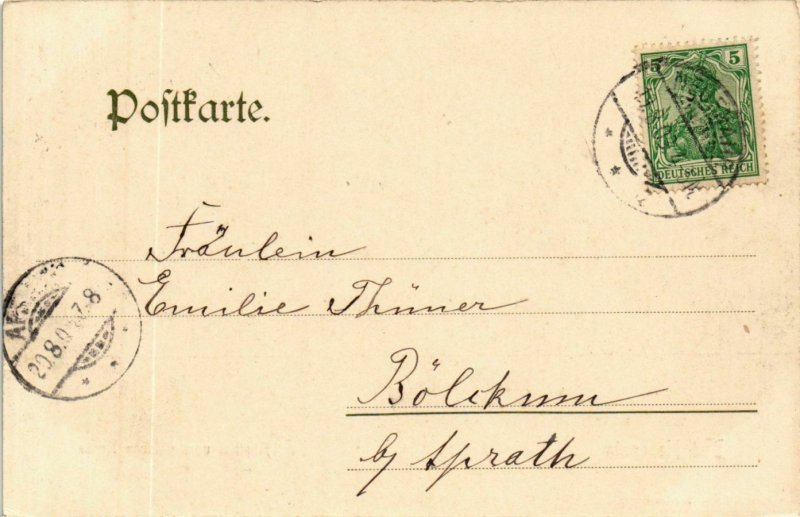 Postkarte.
5 5
DEUTSCHES REICH
Fräulein
Emilie Thüner
Bölckum
b/ Aprath
20.8.0 7.8